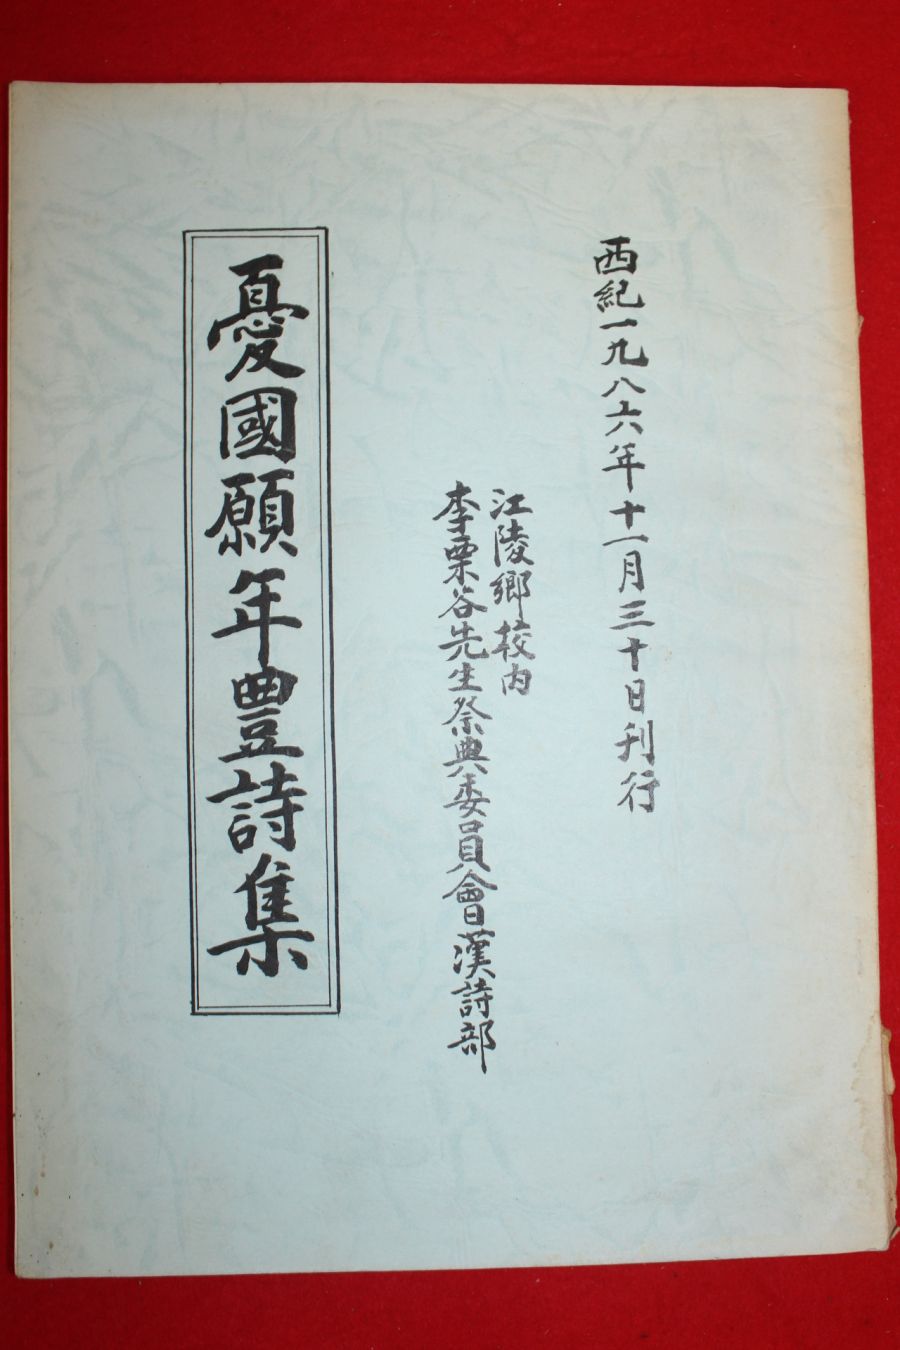 西紀一九八六年十一月三十日刊行
江陵鄉校內
李栗谷先生祭典委員會漢詩部
憂國願年豊詩集